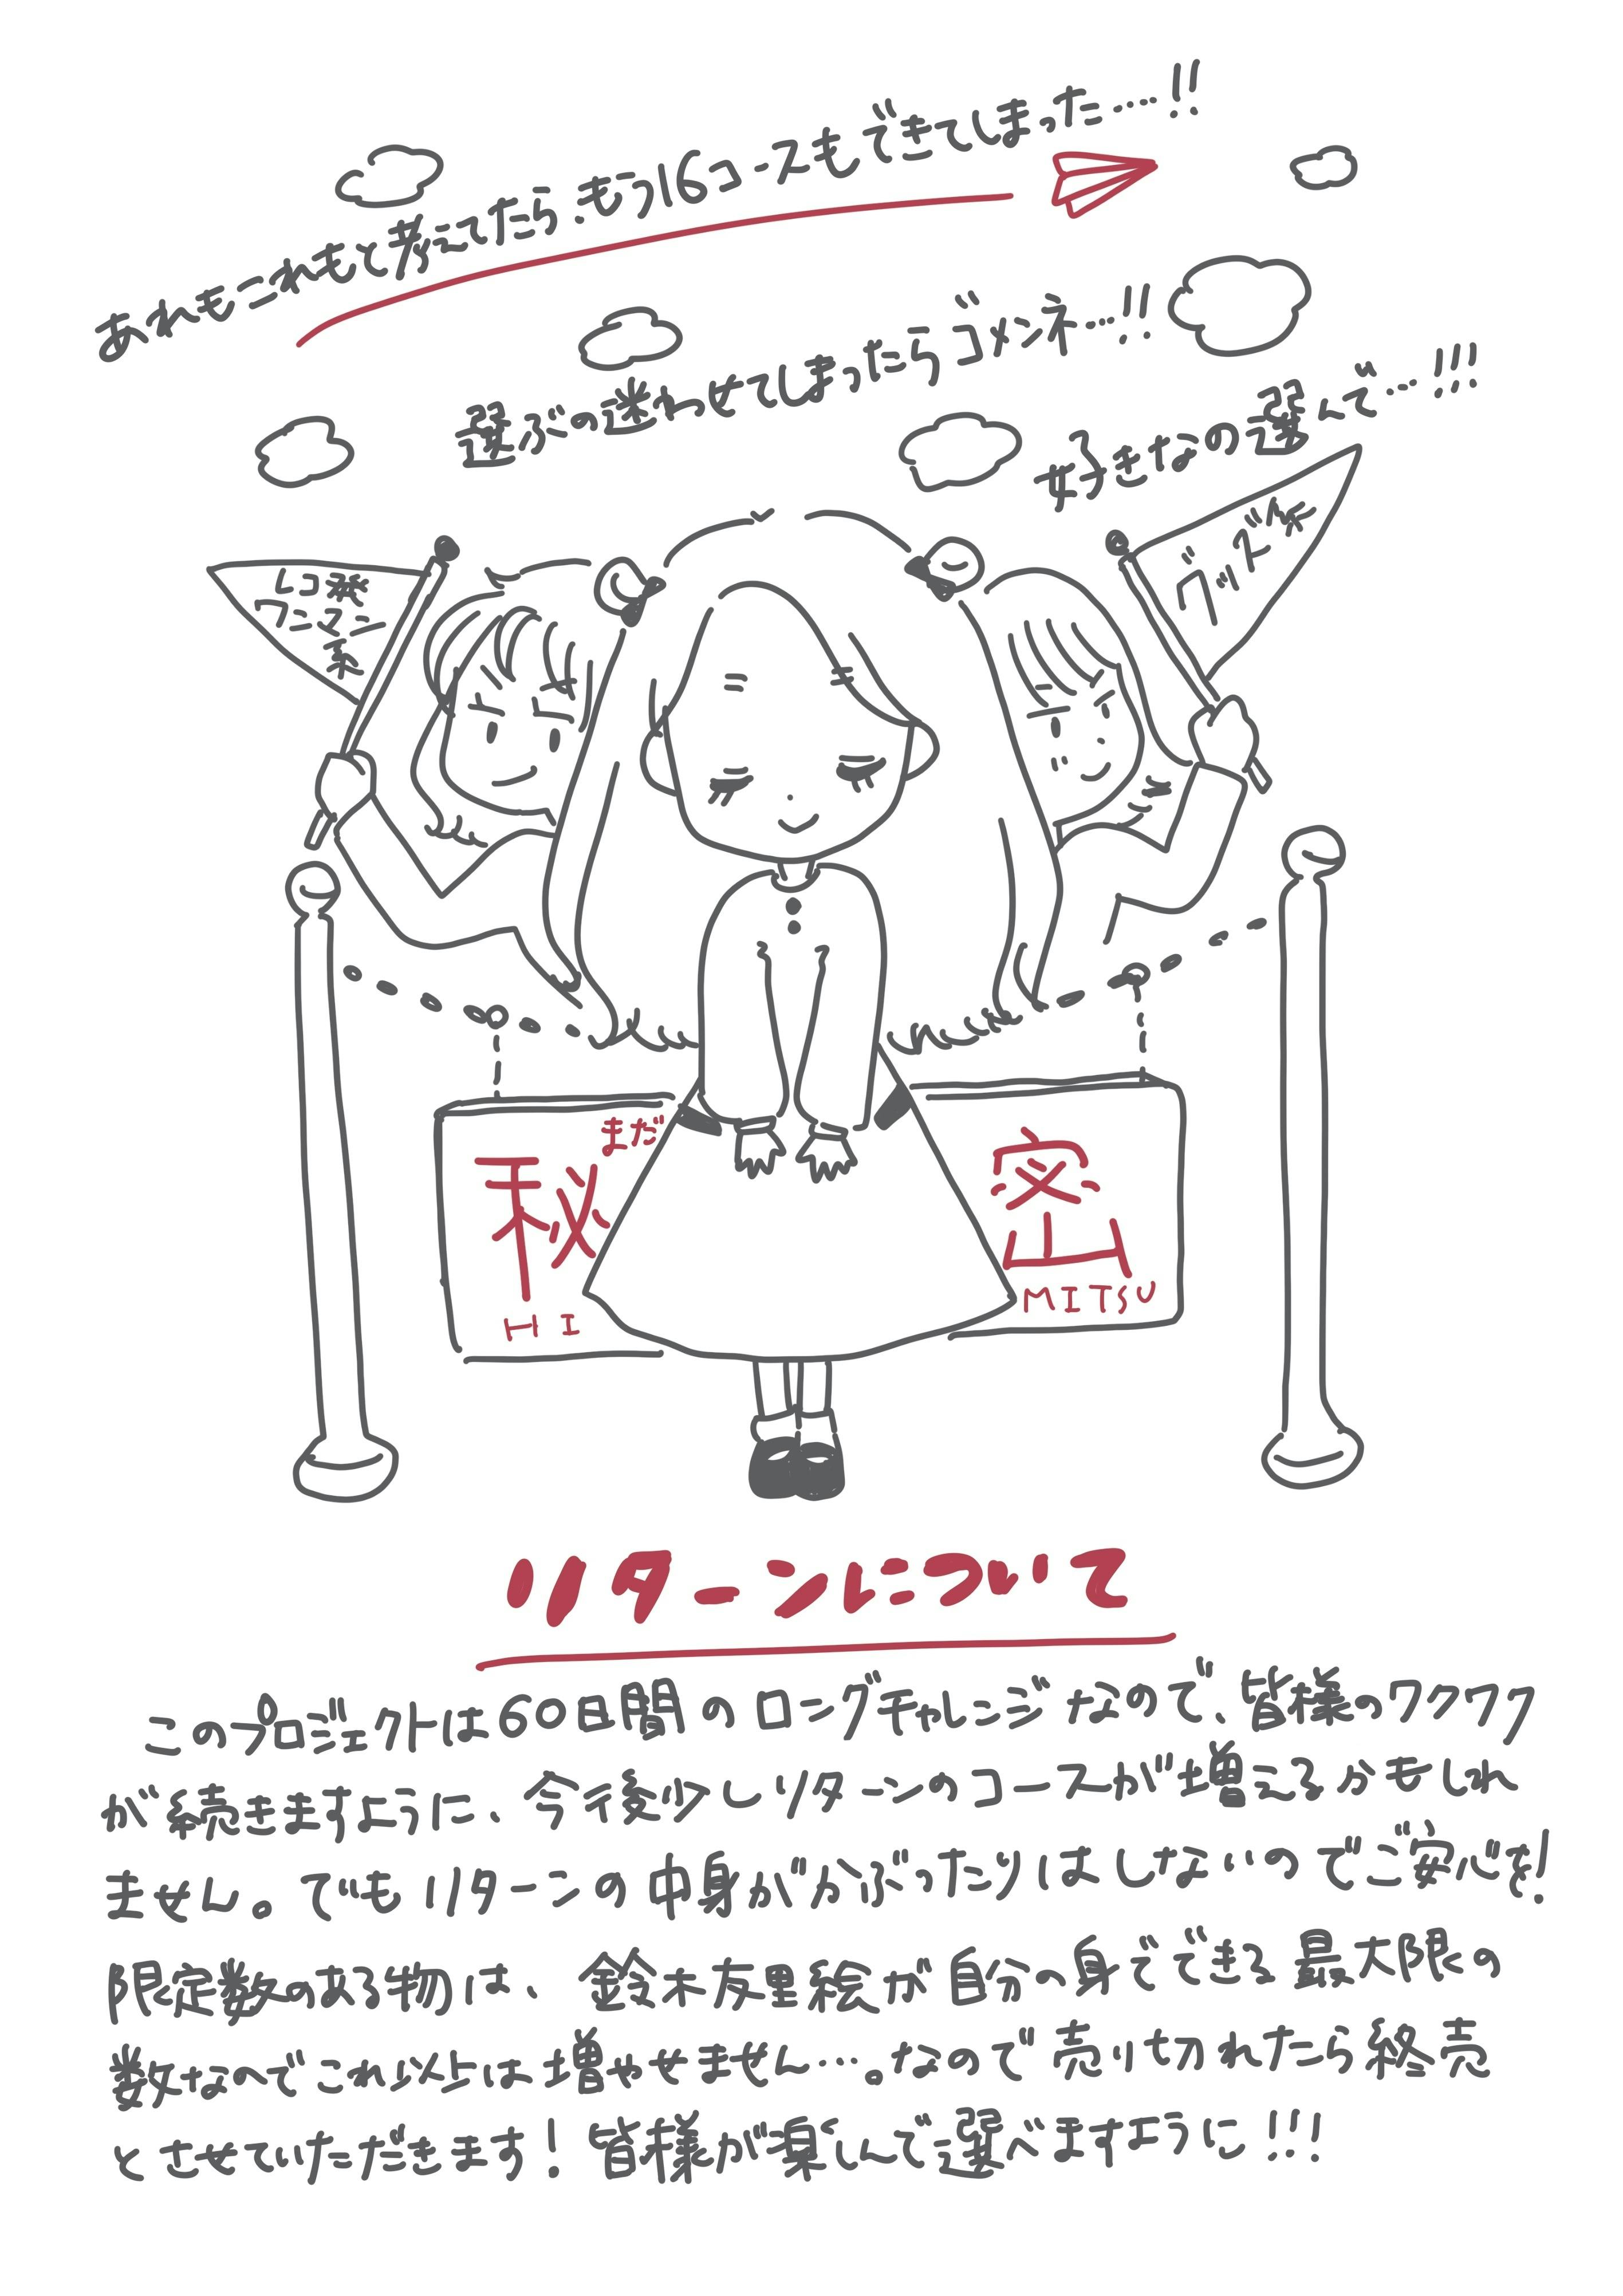 あれもこれもと考えてたら、もう16コースもできてしまった……!!
選ぶの迷わせてしまったらゴメンネ…!!
好きなの選んで…!!!
レコ発
ワンマン
系
グッズ系
まだ
秘
HI
密
MITSU
リターンについて
このプロジェクトは60日間のロングチャレンジなので、皆様のワクワク
が続きますように、今後少しリターンのコースが増えるかもしれ
ません。でもリターンの中身がかぶったりはしないのでご安心を!
限定数のある物は、鈴木友里絵が自分の身でできる最大限の
数なのでこれ以上は増やせません…。なので売り切れたら終売
とさせていただきます!皆様が楽しんで選べますように!!!